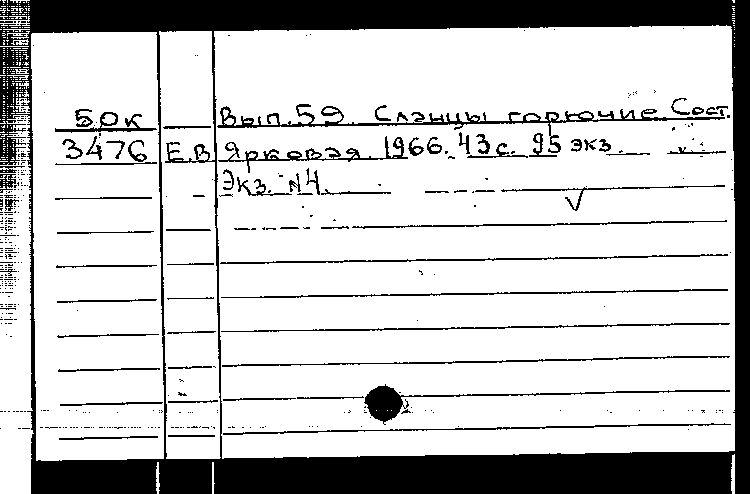 50к Вып. 59. Сланцы горючие Сост.
3476 Е.В. Ярковая. 1966. 43с. 95 экз.
Экз. N4.